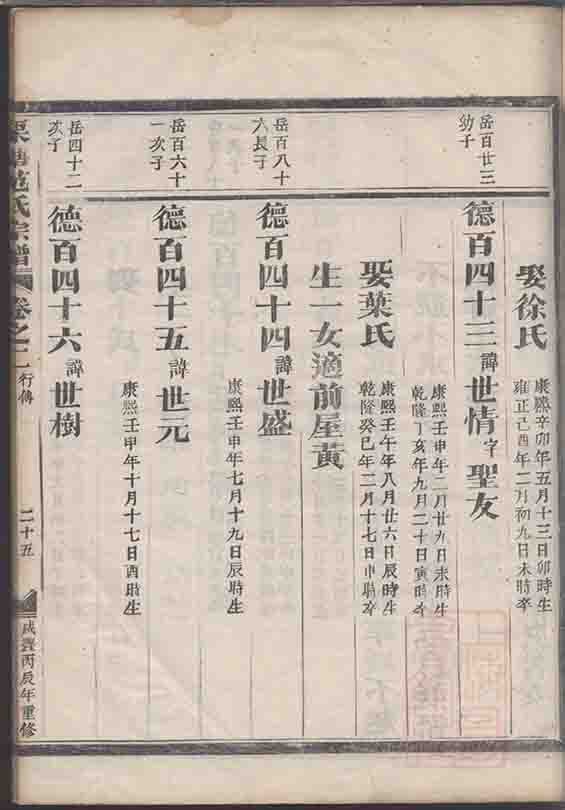 娶徐氏
康熙辛卯年五月十三日卯時生
雍正己酉年二月初九日未時卒
岳百廿三
幼子
德百四十三諱世情字聖友
康熙壬申年二月廿九日未時生
乾隆丁亥年九月二十日寅時卒
娶葉氏
康熙壬午年八月廿六日辰時生
乾隆癸巳年二月十七日申時卒
生一女適前屋黃
岳百八十
六長子
德百四十四諱世盛
康熙壬申年七月十九日辰時生
岳百六十
一次子
德百四十五諱世元
康熙壬申年十月十七日酉時生
岳四十二
次子
德百四十六諱世樹
范氏宗譜
卷之二
行傳
二十五
咸豐丙辰年重修